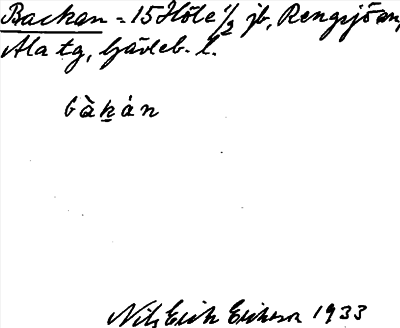 Backan = 15 Höle 1/2 jb, Rengsjö sn,
Ala tg, Gävleb. l.
bàkán
Nils Erik Eriksson 1933